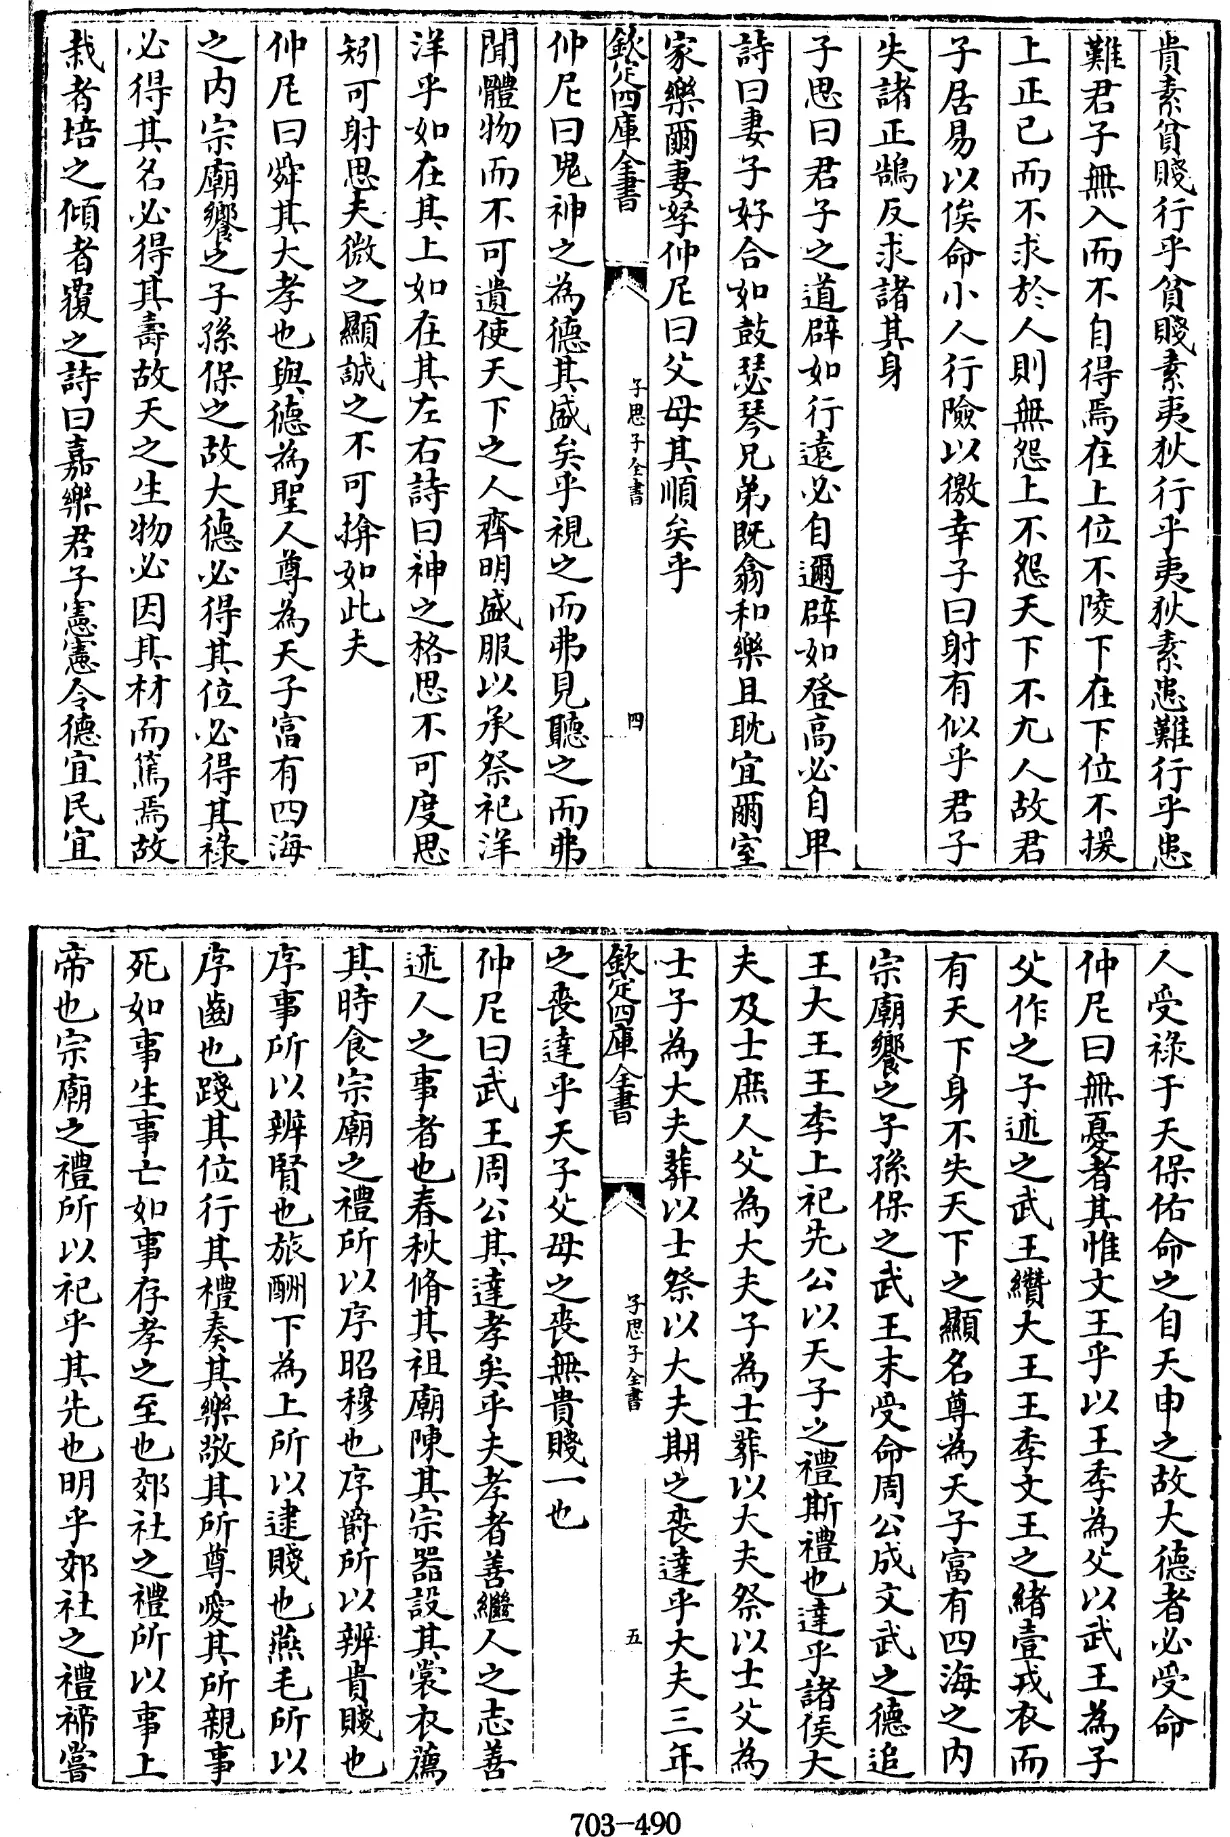 貴素貧賤行乎貧賤素夷狄行乎夷狄素患難行乎患
難君子無入而不自得焉在上位不陵下在下位不援
上正已而不求於人則無怨上不怨天下不尤人故君
子居易以俟命小人行險以徼幸子曰射有似乎君子
失諸正鵠反求諸其身
子思曰君子之道辟如行遠必自邇辟如登高必自卑
詩曰妻子好合如鼓瑟琴兄弟既翕和樂且耽宜爾室
家樂爾妻孥仲尼曰父母其順矣乎
欽定四庫全書
子思子全書
四
仲尼曰鬼神之為德其盛矣乎視之而弗見聽之而弗
聞體物而不可遺使天下之人齊明盛服以承祭祀洋
洋乎如在其上如在其左右詩曰神之格思不可度思
矧可射思夫微之顯誠之不可揜如此夫
仲尼曰舜其大孝也與德為聖人尊為天子富有四海
之内宗廟饗之子孫保之故大德必得其位必得其祿
必得其名必得其壽故天之生物必因其材而篤焉故
栽者培之傾者覆之詩曰嘉樂君子憲憲令德宜民宜
人受祿于天保佑命之自天申之故大德者必受命
仲尼曰無憂者其惟文王乎以王季為父以武王為子
父作之子述之武王纘大王王季文王之緒壹戎衣而
有天下身不失天下之顯名尊為天子富有四海之内
宗廟饗之子孫保之武王末受命周公成文武之德追
王大王王季上祀先公以天子之禮斯禮也達乎諸侯大
夫及士庶人父為大夫子為士葬以大夫祭以士父為
士子為大夫葬以士祭以大夫期之喪達乎大夫三年
欽定四庫全書
子思子全書
五
之喪達乎天子父母之喪無貴賤一也
仲尼曰武王周公其達孝矣乎夫孝者善繼人之志善
述人之事者也春秋脩其祖廟陳其宗器設其裳衣薦
其時食宗廟之禮所以序昭穆也序爵所以辨貴賤也
序事所以辨賢也旅酬下為上所以逮賤也燕毛所以
序齒也踐其位行其禮奏其樂敬其所尊愛其所親事
死如事生事亡如事存孝之至也郊社之禮所以事上
帝也宗廟之禮所以祀乎其先也明乎郊社之禮禘嘗
703-490